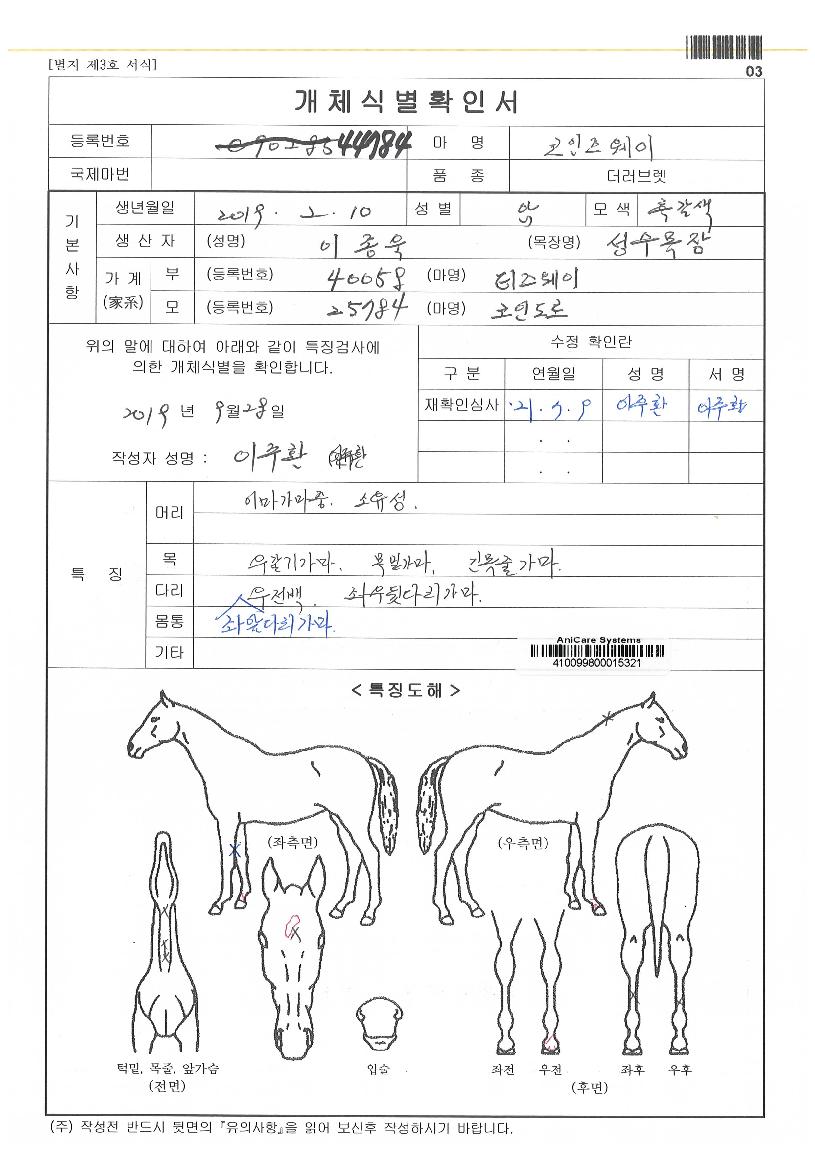 03
[별지 제3호 서식]
개체식별확인서
등록번호 44984 마 명 코인즈웨이
국제마번 품 종 더러브렛
기본사항
생년월일 2019. 2. 10 성 별 암 모 색 흑갈색
생 산 자 (성명) 이종욱 (목장명) 성수목장
가 계 (家系)
부 (등록번호) 40058 (마명) 티즈웨이
모 (등록번호) 25784 (마명) 코인도로
위의 말에 대하여 아래와 같이 특징검사에
의한 개체식별을 확인합니다.
2019 년 9월 28일
작성자 성명 : 이주환 이주환
수정 확인란
구 분 연월일 성 명 서 명
재확인심사 '21. 7. 9 이주환 이주환
. .
. .
특 징
머리 이마가마중. 소유성.
목 우갈기가마. 목밑가마. 긴목줄가마.
다리 우전백. 좌우뒷다리가마.
몸통 좌앞다리가마.
기타
AniCare Systems
410099800015321
< 특징도해 >
(좌측면) (우측면)
턱밑, 목줄, 앞가슴 입술 좌전 우전 좌후 우후
(전면) (후면)
(주) 작성전 반드시 뒷면의 『유의사항』을 읽어 보신후 작성하시기 바랍니다.